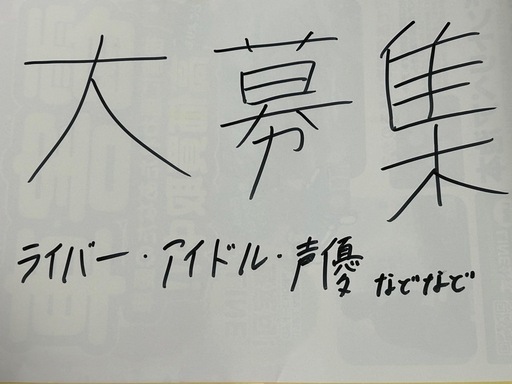 大募集
ライバー・アイドル・声優 などなど